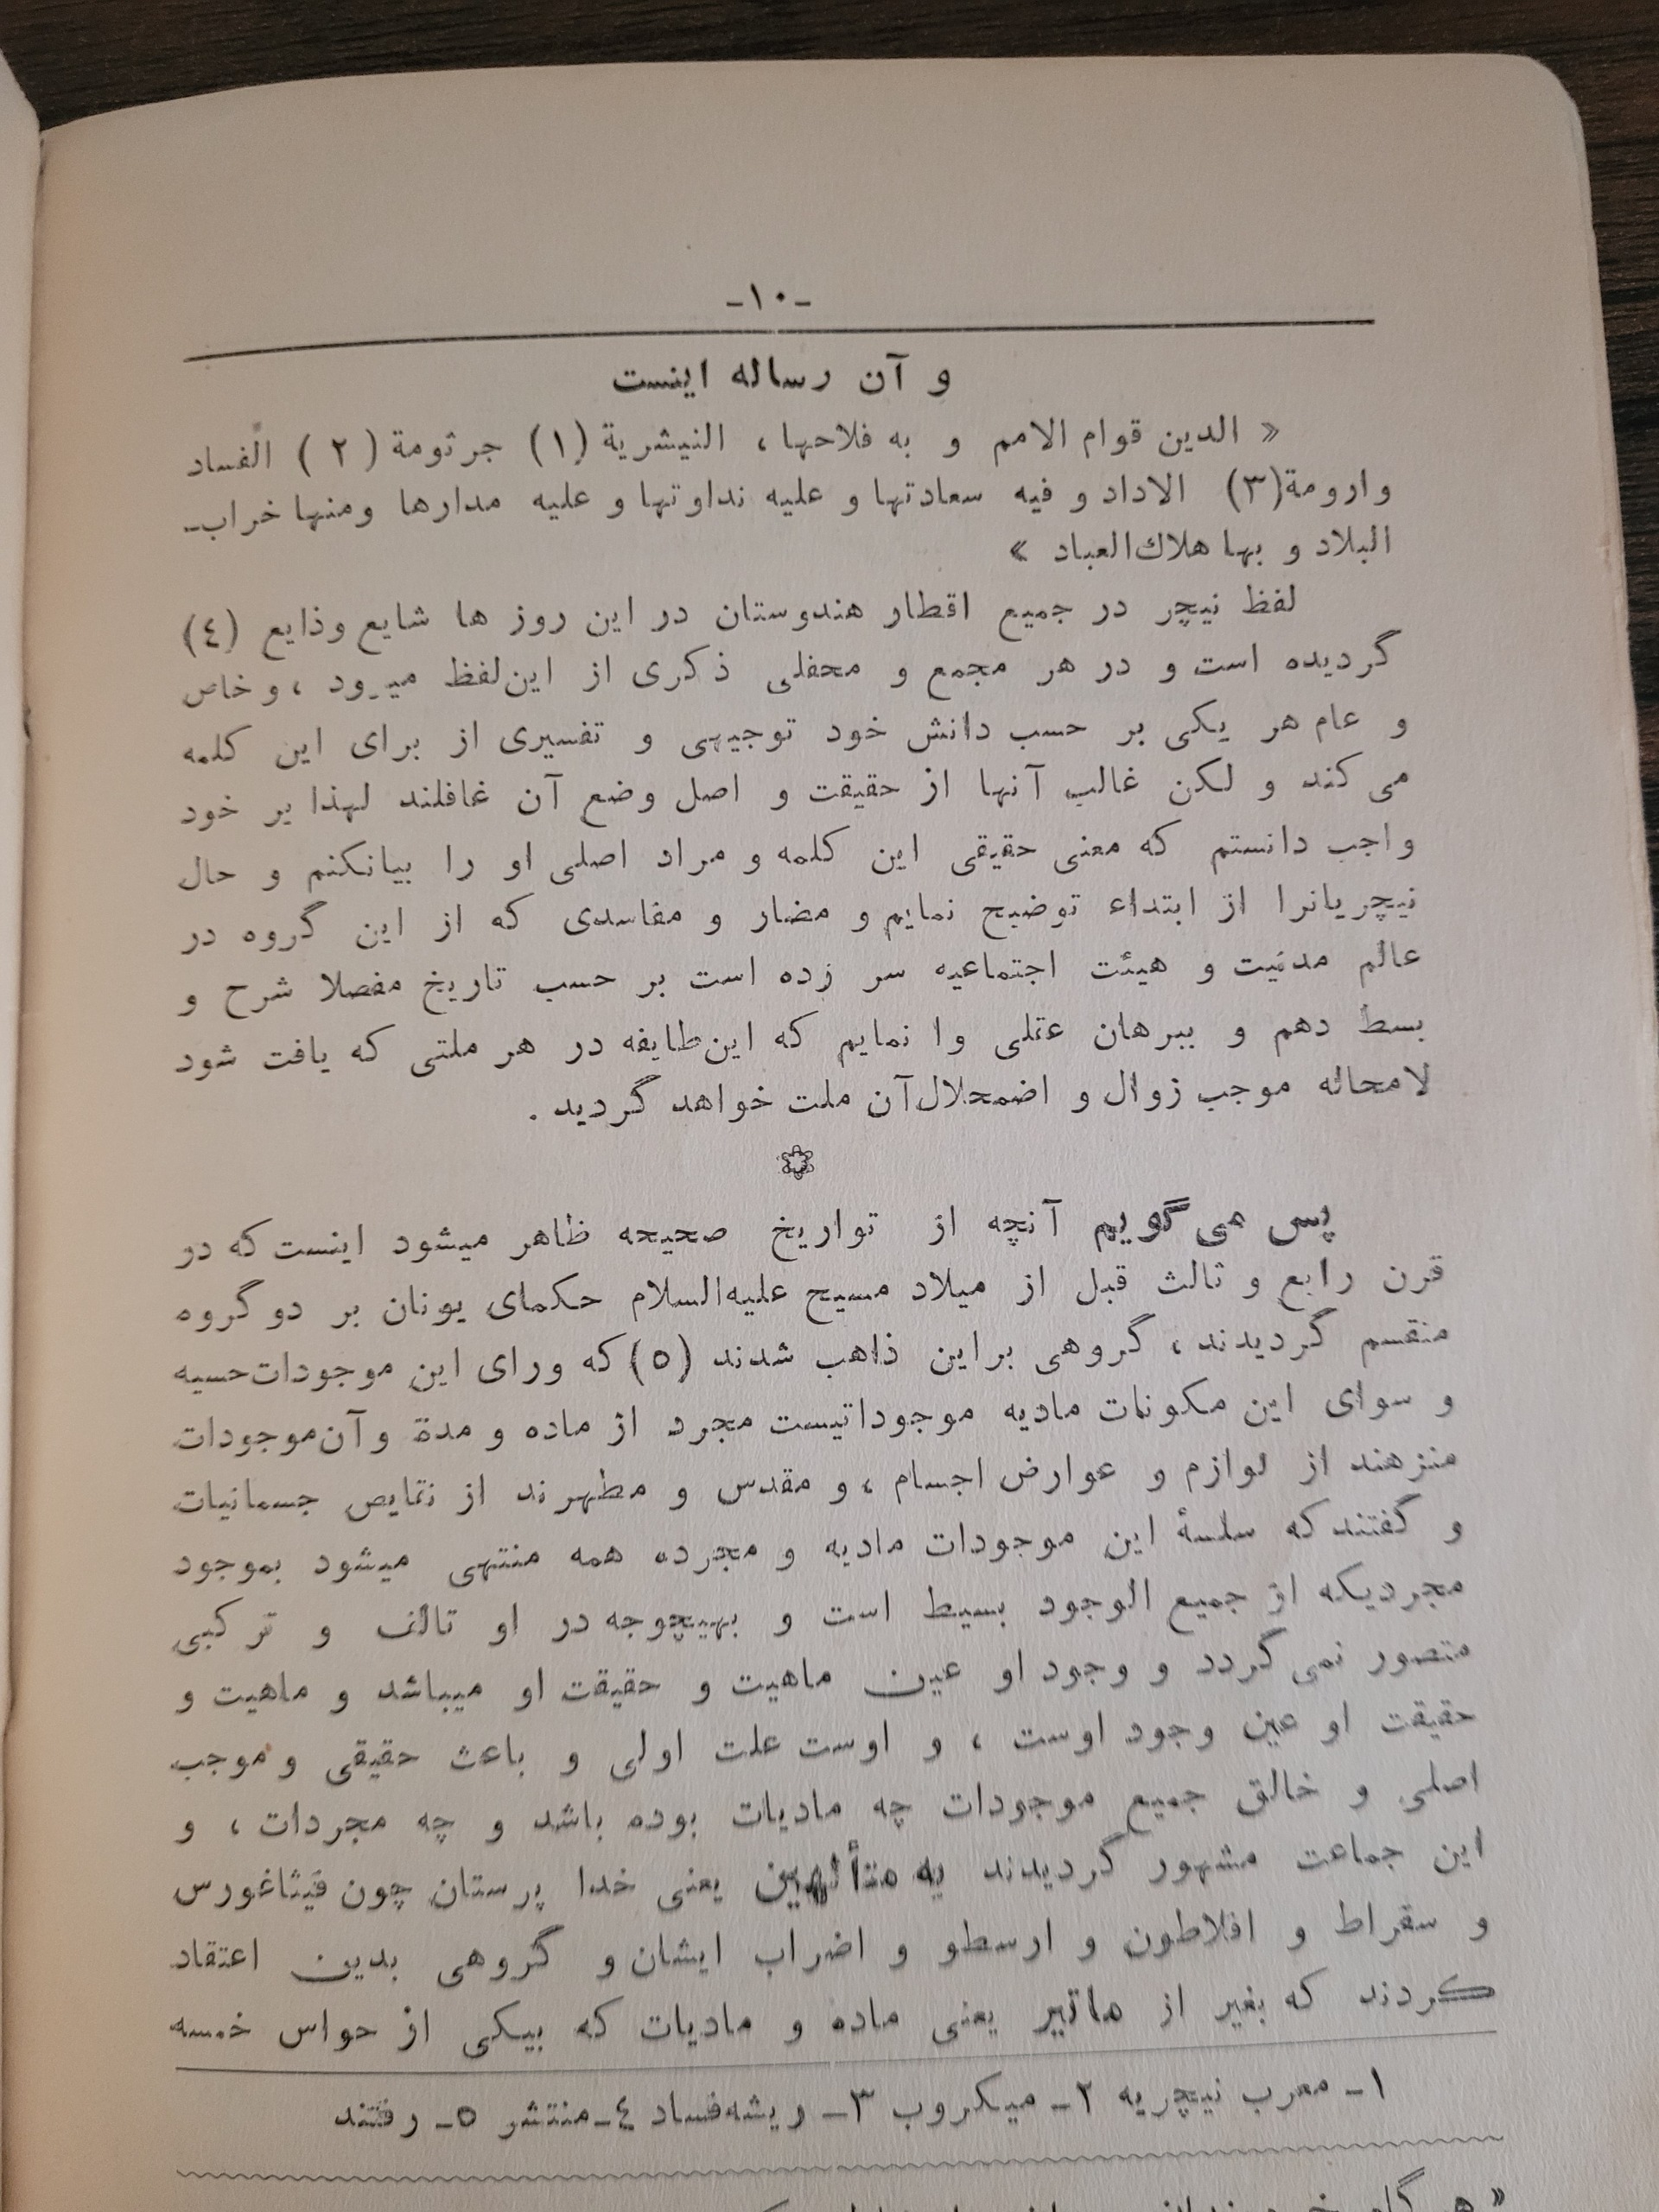 -١٠-
و آن رساله اینست
« الدین قوام الامم و به فلاحها ، النیشریة (١) جرثومة (٢) الفساد
وارومة(٣) الاداد و فیه سعادتها و علیه نداوتها و علیه مدارها ومنها خراب-
البلاد و بها هلاك‌العباد »
لفظ نیچر در جمیع اقطار هندوستان در این روز ها شایع وذایع (٤)
گردیده است و در هر مجمع و محفلی ذکری از این‌لفظ میرود ، و خاص
و عام هر یکی بر حسب دانش خود توجیهی و تفسیری از برای این کلمه
می کند و لکن غالب آنها از حقیقت و اصل وضع آن غافلند لهذا بر خود
واجب دانستم که معنی حقیقی این کلمه و مراد اصلی او را بیانکنم و حال
نیچریانرا از ابتداء توضیح نمایم و مضار و مفاسدی که از این گروه در
عالم مدنیت و هیئت اجتماعیه سر زده است بر حسب تاریخ مفصلا شرح و
بسط دهم و ببرهان عقلی وا نمایم که این‌طایفه در هر ملتی که یافت شود
لامحاله موجب زوال و اضمحلال‌آن ملت خواهد گردید .
پس می گویم آنچه از تواریخ صحیحه ظاهر میشود اینست که در
قرن رابع و ثالث قبل از میلاد مسیح علیه‌السلام حکمای یونان بر دو گروه
منقسم گردیدند ، گروهی براین ذاهب شدند (٥) که ورای این موجودات‌حسیه
و سوای این مکونات مادیه موجوداتیست مجرد از ماده و مدة و آن‌موجودات
منزهند از لوازم و عوارض اجسام ، و مقدس و مطهرند از نقایص جسمانیات
و گفتند که سلسۀ این موجودات مادیه و مجرده همه منتهی میشود بموجود
مجردیکه از جمیع الوجود بسیط است و بهیچوجه در او تالف و ترکیبی
متصور نمی گردد و وجود او عین ماهیت و حقیقت او میباشد و ماهیت و
حقیقت او عین وجود اوست ، و اوست علت اولی و باعث حقیقی و موجب
اصلی و خالق جمیع موجودات چه مادیات بوده باشد و چه مجردات ، و
این جماعت مشهور گردیدند به متألهین یعنی خدا پرستان چون فیثاغورس
و سقراط و افلاطون و ارسطو و اضراب ایشان و گروهی بدین اعتقاد
کردند که بغیر از ماتیر یعنی ماده و مادیات که بیکی از حواس خمسه
١- معرب نیچریه ٢- میکروب ٣- ریشه‌فساد ٤-منتشر ٥- رفتند